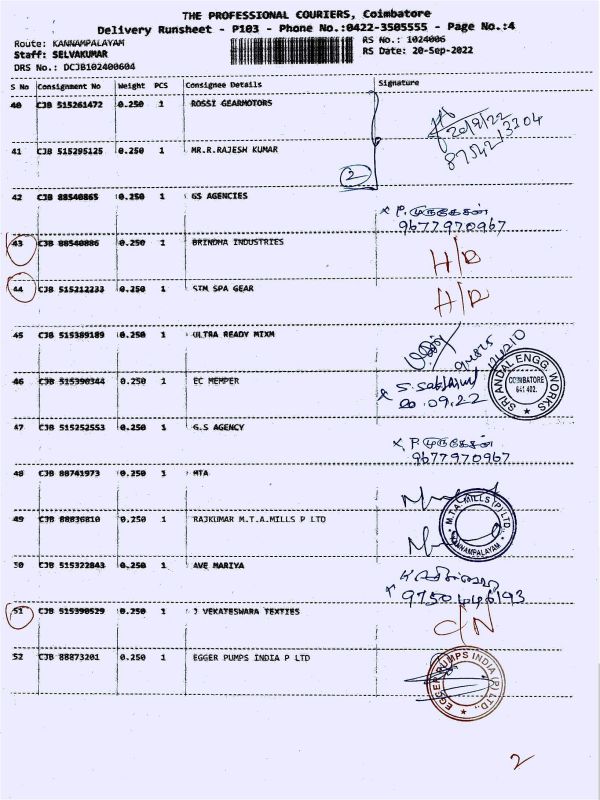 THE PROFESSIONAL COURIERS, Coimbatore
Delivery Runsheet - P103 - Phone No.:0422-3505555 - Page No.:4
Route: KANNAMPALAYAM
RS No.: 1024006
Staff: SELVAKUMAR
RS Date: 20-Sep-2022
DRS No.: DCJB102400604
S No Consignment No Weight PCS Consignee Details Signature
40 CJB 515261472 0.250 1 ROSSI GEARMOTORS
20/9/22
8754213304
41 CJB 515295125 0.250 1 MR.R.RAJESH KUMAR
2
42 CJB 88540865 0.250 1 GS AGENCIES
x P. முருகேசன்
9677970967
43 CJB 88540886 0.250 1 BRINDHA INDUSTRIES
H/D
44 CJB 515212233 0.250 1 STM SPA GEAR
H/D
45 CJB 515389189 0.250 1 ULTRA READY MIXM
46 CJB 515390344 0.250 1 EC MEMPER
20.09.22
SRI ANDAL ENGG. WORKS
COIMBATORE
641 402.
47 CJB 515252553 0.250 1 G.S AGENCY
x P. முருகேசன்
9677970967
48 CJB 88741973 0.250 1 MTA
49 CJB 88836810 0.250 1 RAJKUMAR M.T.A.MILLS P LTD
M.T.A. MILLS (P) LTD.,
KANNAMPALAYAM
50 CJB 515322843 0.250 1 AVE MARIYA
9750446193
51 CJB 515390529 0.250 1 J VEKATESWARA TEXTIES
C/N
52 CJB 88873201 0.250 1 EGGER PUMPS INDIA P LTD
EGGER PUMPS INDIA (P) LTD.,
2